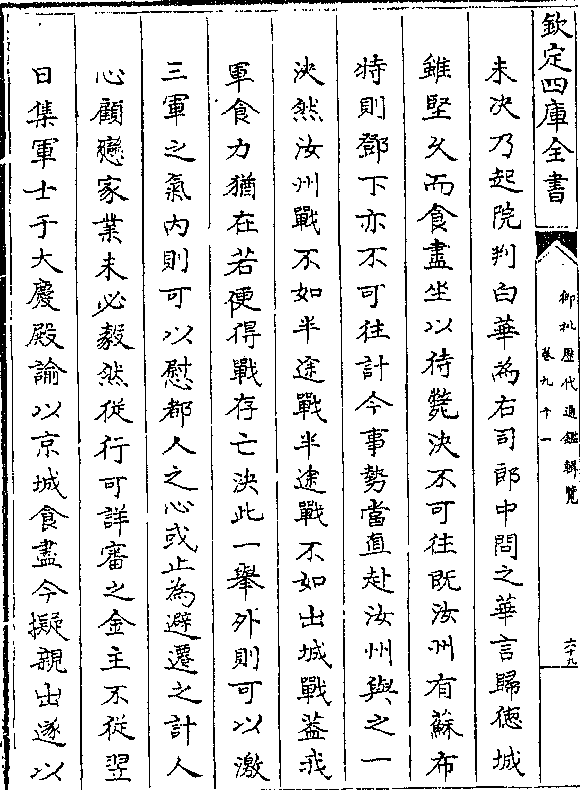 欽定四庫全書
御批歷代通鑑輯覽
卷九十一
六十九
未決乃起院判白華為右司郎中問之華言歸徳城
雖堅久而食盡坐以待斃決不可往既汝州有蘇布
特則鄧下亦不可往計今事勢當直赴汝州與之一
決然汝州戰不如半途戰半途戰不如出城戰蓋我
軍食力猶在若便得戰存亡決此一舉外則可以激
三軍之氣内則可以慰都人之心或止為避遷之計人
心顧戀家業未必毅然從行可詳審之金主不從翌
日集軍士于大慶殿諭以京城食盡今擬親出遂以